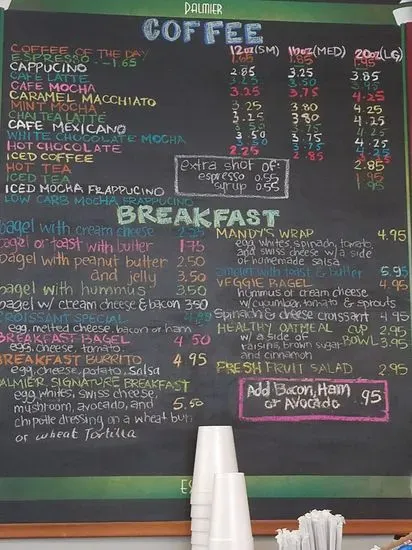 DALMIER
COFFEE
12oz(SM) 16oz(MED) 20oz(LG)
COFFEE OF THE DAY 1.65 1.85 1.95
ESPRESSO - 1.65
CAPPUCINO 2.85 3.25 3.85
CAFE LATTE
CAFE MOCHA 3.25 3.75 4.25
CARAMEL MACCHIATO
MINT MOCHA 3.25 3.80 4.25
CHAI TEA LATTE
CAFE MEXICANO
WHITE CHOCOLATE MOCHA
HOT CHOCOLATE
ICED COFFEE
HOT TEA
ICED TEA
ICED MOCHA FRAPPUCINO
LOW CARB MOCHA FRAPPUCINO
extra shot of:
espresso 0.55
syrup 0.55
BREAKFAST
bagel with cream cheese
bagel or toast with butter 1.75
bagel with peanut butter 2.50
and jelly 3.50
bagel with hummus 3.50
bagel w/ cream cheese & bacon 3.90
CROISSANT SPECIAL
egg, melted cheese, bacon or ham
BREAKFAST BAGEL 4.50
eggs, cheese, tomato
BREAKFAST BURRITO 4.95
egg, cheese, potato, salsa
DALMIER SIGNATURE BREAKFAST
egg whites, swiss cheese,
mushroom, avocado, and 5.50
chipotle dressing on a wheat bun
or wheat Tortilla
MANDY'S WRAP 4.95
egg whites, spinach, tomato,
and swiss cheese w/a side
of homemade salsa
with toast & butter 5.95
VEGGIE BAGEL 4.95
hummus or cream cheese
w/cucumber, tomato & sprouts
spinach & cheese croissant 4.95
HEALTHY OATMEAL CUP 2.95
w/a side of BOWL 3.95
raisins, brown sugar,
and cinnamon
FRESH FRUIT SALAD 2.95
Add Bacon, Ham .95
or Avocado